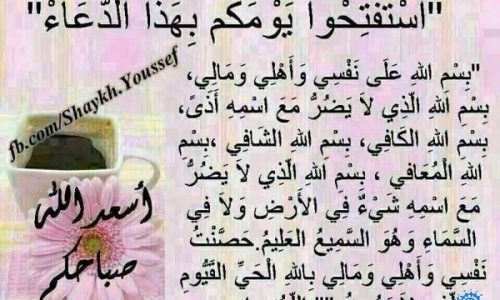 "اسْتَفْتِحُوا يَوْمَكُم بِهَذَا الدُّعَاءْ"
"بِسْمِ اللهِ عَلَى نَفْسِي وَأَهْلِي وَمَالِي،
بِسْمِ اللهِ الَّذِي لاَ يَضُرُّ مَعَ اسْمِهِ أَذَىً،
بِسْمِ اللهِ الكَافِي، بِسْمِ اللهِ الشَّافِي ،بِسْمِ
اللهِ الْمُعَافِي ، بِسْمِ اللهِ الَّذِي لاَ يَضُرُّ
مَعَ اسْمِهِ شَيْءٌ فِي الأَرْضِ وَلاَ فِي
السَّمَاءِ وَهُوَ السَّمِيعُ العَلِيمُ.حَصَّنْتُ
نَفْسِي وَأَهْلِي وَمَالِي بِاللهِ الْحَيِّ القَيُّومِ
fb.com/Shaykh.Youssef
أسعد الله
صباحكم